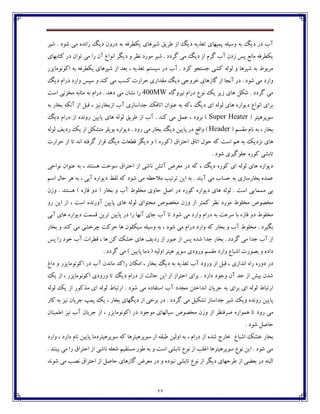 آب در دیگ به وسیله پمپهای تغذیه دیگ از طریق شیرهای یکطرفه به درون دیگ رانده می شود . شیر
یکطرفه مانع پس زدن آب گرم از دیگ می گردد . شیر مورد نظر و دیگر انواع آن را می توان در کتابهای
مربوط به شیرها و لوله کشی جستجو کرد . آب در سیستم تغذیه ، بعد از شیرهای یکطرفه به اکونومایزر
وارد می شود . در آنجا از گازهای خروجی دیگ مقداری حرارت کسب می کند و سپس وارد درام دیگ
می گردد . شکل های زیر یک نوع درام نیروگاه 400MW را نشان می دهند . درام به مثابه مخزنی است
برای انواع دیواره های لوله ای دیگ ،که به عنوان اتاقک جداسازی آب ازبخارنیز ، قبل از آنکه بخار به
سوپرهیتر ( Super Heater ) برود ، عمل می کند . آب از طریق لوله های پایین رونده از درام دیگ
بخار ، به نام مقسم ( Header ) واقع در پایین دیگ بخار می رود . دیواره بویلر متشکل از یک ردیف لوله
های نزدیک به هم است که حول اتاق احتراق (کوره ) و دیگر قطعات دیگ قرار گرفته اند تا از حرارت
تابشی کوره جلوگیری شود .
دیواره های لوله ای کوره دیگ ، که در معرض آتش ناشی از احتراق سوخت هستند ، به عنوان نواحی
عمده بخارسازی به حساب می آیند . به این ترتیب ملاحظه می شود که لفظ دیواره آبی ، به هر حال اسم
بی مسمایی است . لوله های دیواره کوره در اصل حاوی مخلوط آب و بخار ( دو فازه ) هستند . وزن
مخصوص مخلوط مورد نظر کمتر از وزن مخصوص محتوای لوله های پایین آورنده است ، از این رو
مخلوط دو فازه با سرعت به درام وارد می شود تا آب جای آنها را در پایین ترین قسمت دیواره های آبی
بگیرد . مخلوط آب و بخار که وارد درام می شود ، به وسیله سیکلون ها حرکت چرخشی می کند و بخار
از آب جدا می گردد . بخار جدا شده پس از عبور از ردیف های خشک کن ها ، قطرات آب خود را پس
داده و بصورت اشباع وارد مقسم ورودی سوپر هیتر اولیه ( دما پایین ) می گردد.
در دوره راه اندازی ، قبل از ورود آب تغذیه به دیگ بخار ، امکان راکد ماندن آب در اکونومایزر و داغ
شدن بیش از حد آن وجود دارد . برای احتراز از این حالت از درام دیگ تا ورودی اکونومایزر ، از یک
ارتباط لوله ای برای به جریان انداختن مجدد آب استفاده می شود . ارتباط لوله ای مذکور از یک لوله
پایین رونده ویک شیر جداساز تشکیل می گردد . در برخی از دیگهای بخار ، یک پمپ جریان نیز به کار
می رود تا همواره صرفنظر از وزن مخصوص سیالهای موجود در اکونومایزر ، از جریان آب نیز اطمینان
حاصل شود .
بخار خشک اشباع خارج شده از درام ، به اولین طبقه از سوپرهیترها که سوپرهیتردما پایین نام دارد ، وارد
می شود . این نوع سوپرهیترها اغلب از نوع تابشی است و به طور مستقیم شعله ناشی از احتراق را می بینند .
البته در بعضی از طرحهای دیگر از نوع تابشی نبوده و در معرض گازهای حاصل از احتراق نصب می شوند